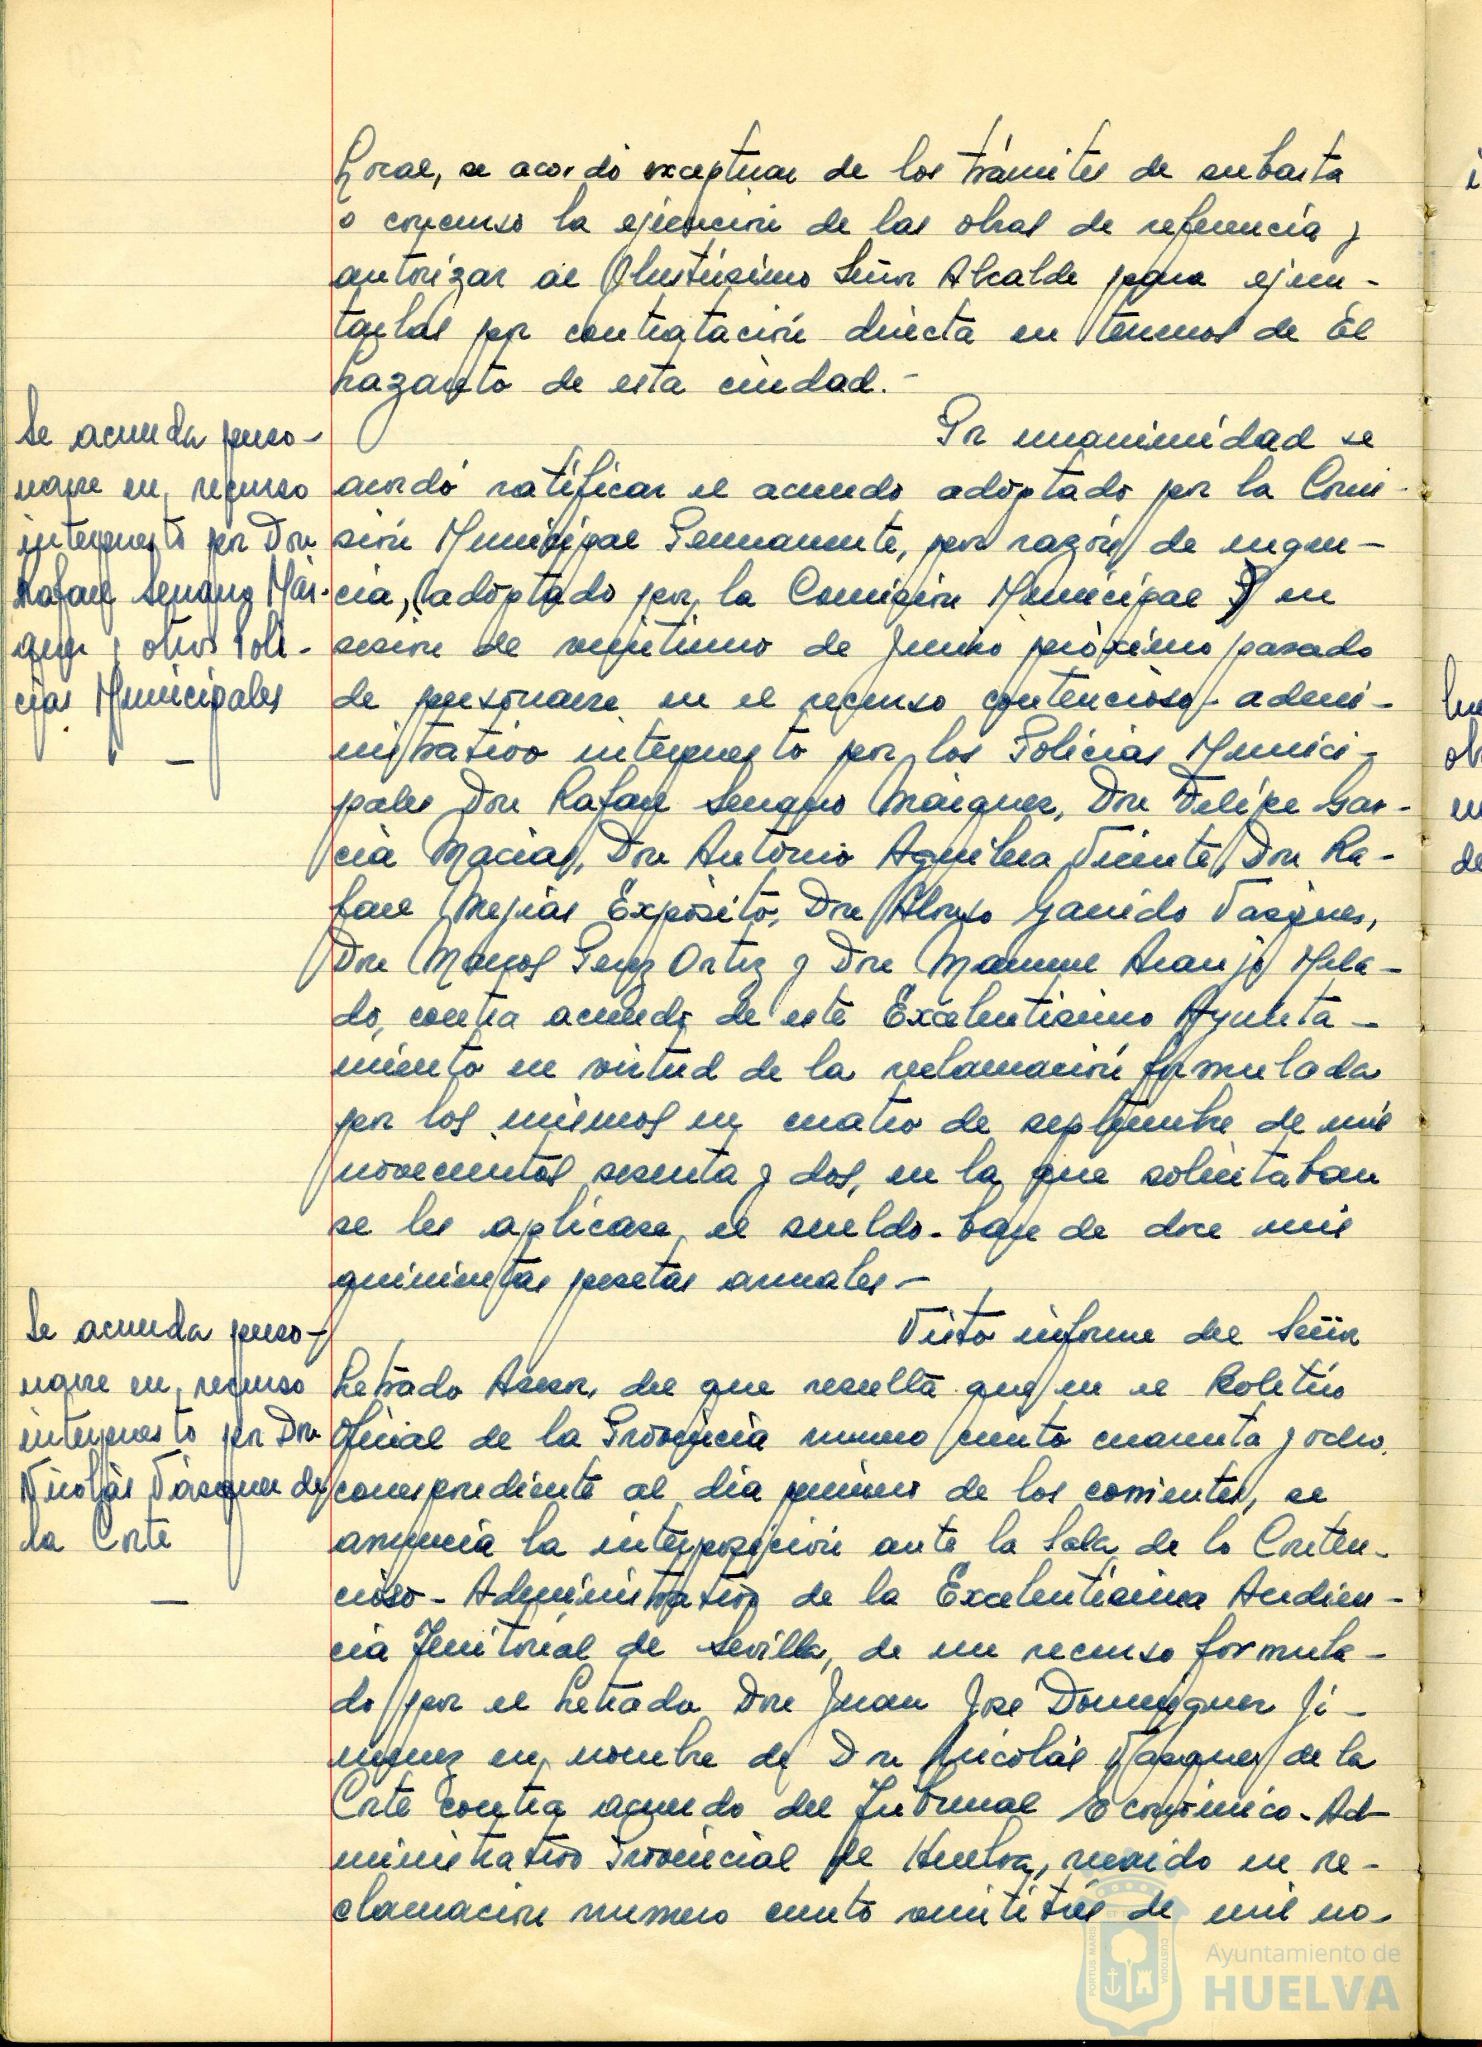 Local, se acordó exceptuar de los trámites de subasta
o concurso la ejecución de las obras de referencia y
autorizar al Ilustrísimo Señor Alcalde para ejecu-
tarlas por contratación directa en terrenos de El
Lazareto de esta ciudad.-
Se acuerda perso-
narse en recurso
interpuesto por Don
Rafael Serrano Már-
quez y otros Poli-
cías Municipales
Por unanimidad se
acordó ratificar el acuerdo adoptado por la Comi-
sión Municipal Permanente, por razón de urgen-
cia, (adoptado por la Comisión Municipal P) en
sesión de veintiuno de Junio próximo pasado
de personarse en el recurso contencioso-admi-
nistrativo interpuesto por los Policías Munici-
pales Don Rafael Serrano Márquez, Don Felipe Gar-
cía Macías, Don Antonio Aguilera Vicente, Don Ra-
fael Mejías Expósito, Don Alonso Garrido Vázquez,
Don Marcos Ortiz y Don Manuel Araujo Mela-
do, contra acuerdo de este Excelentísimo Ayunta-
miento en virtud de la reclamación formulada
por los mismos en cuatro de septiembre de mil
novecientos sesenta y dos, en la que solicitaban
se les aplicase el sueldo-base de doce mil
quinientas pesetas anuales-
Se acuerda perso-
narse en recurso
interpuesto por Don
Nicolás Vázquez de
la Corte
Visto informe del Señor
Letrado Asesor, del que resulta que en el Boletín
Oficial de la Provincia número ciento cuarenta y ocho,
correspondiente al día primero de los corrientes, se
anuncia la interposición ante la Sala de lo Conten-
cioso-Administrativo de la Excelentísima Audien-
cia Territorial de Sevilla, de un recurso formula-
do por el Letrado Don Juan José Domínguez Ji-
ménez en nombre de Don Nicolás Vázquez de la
Corte contra acuerdo del Tribunal Económico-Ad-
ministrativo Provincial de Huelva, recaído en re-
clamación número ciento veintitrés de mil no-
PORTUS MARIS ET TERRAE CUSTODIA
Ayuntamiento de
HUELVA